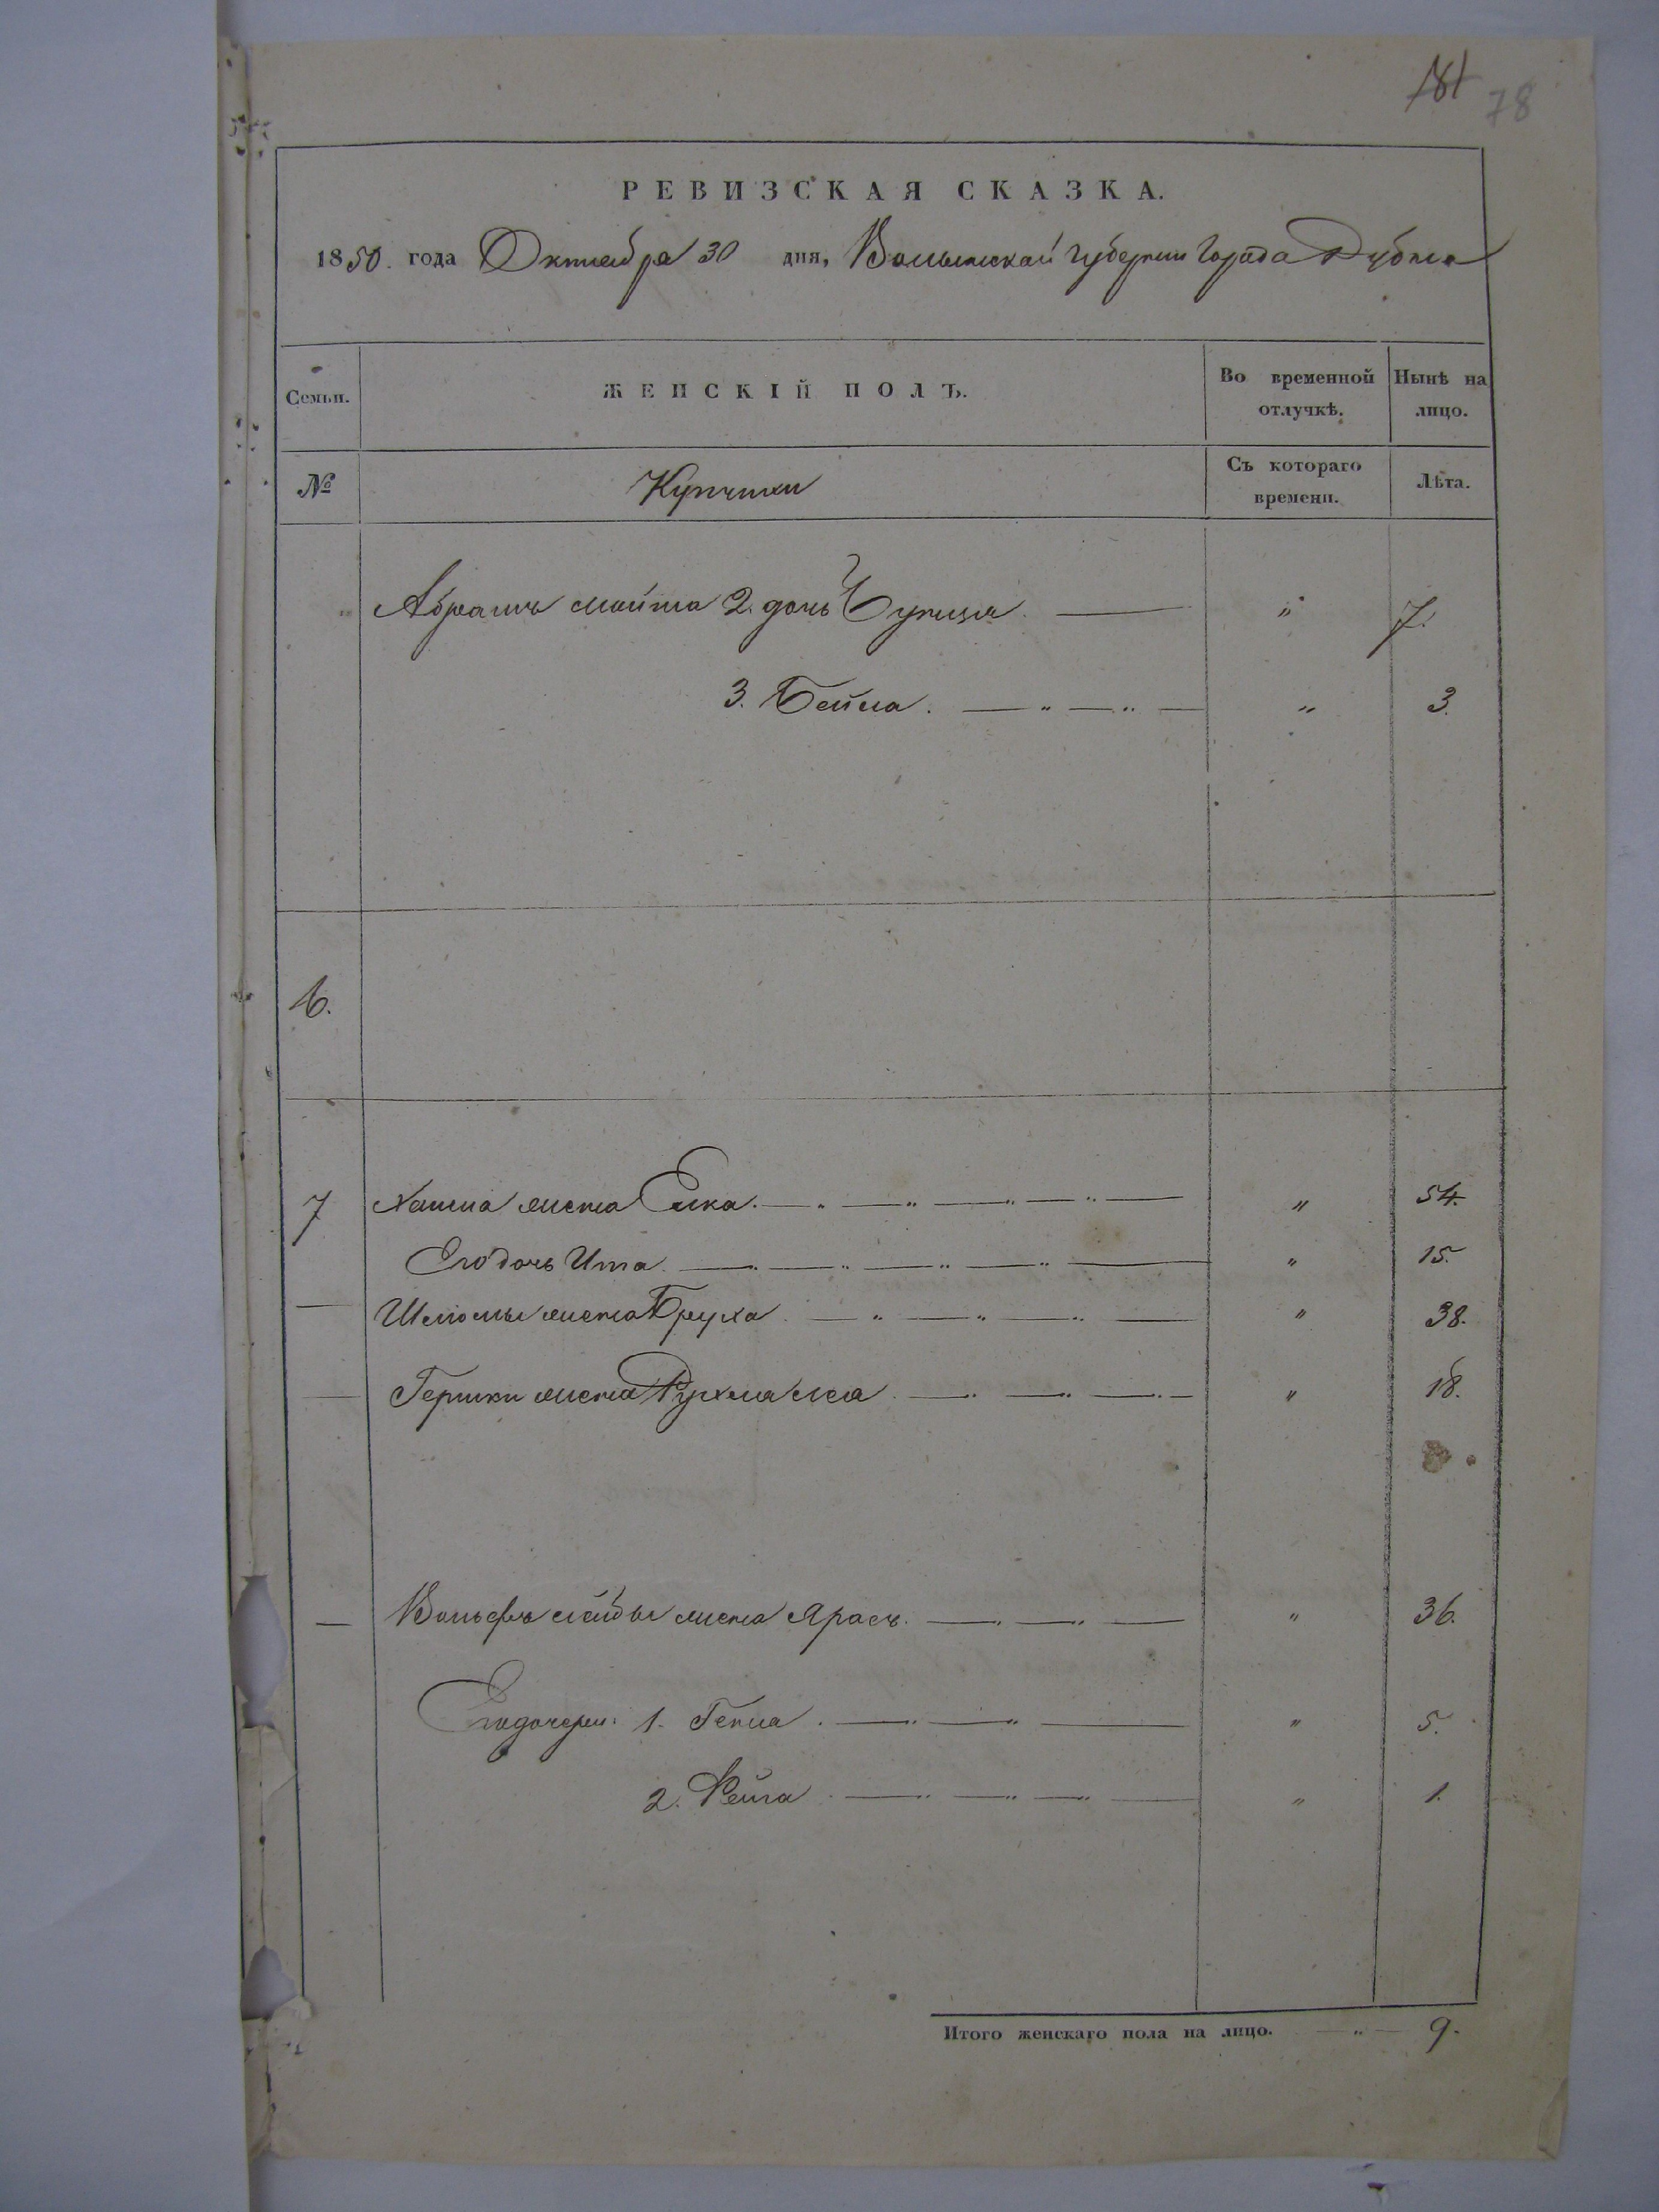 181 78
РЕВИЗСКАЯ СКАЗКА.
1850. года Октября 30 дня, Волынской губернии города Дубна
Семьи. ЖЕНСКІЙ ПОЛЪ. Во временной отлучкѣ. Нынѣ на лицо.
№ Купчихи Съ котораго времени. Лѣта.
Абрамъ 2. дочь " 7.
3. Бейла. " 3.
6.
7 жена Елка. " 54.
Его дочь Ита. " 15.
Шлiомы жена Бруха. " 38.
Гершки жена " 18.
Вольфъ жена " 36.
Его дочери: 1. Гепла. " 5.
2. Фейга " 1.
Итого женскаго пола на лицо. " 9.